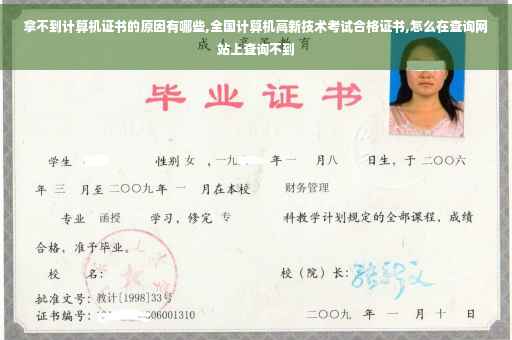 拿不到计算机证书的原因有哪些,全国计算机高新技术考试合格证书,怎么在查询网
站上查询不到
成 高 等 教 育
毕业证书
学生 性别 女 ，一九 年 一 月 八 日生，于 二〇〇六
年 三 月至 二〇〇九 年 一 月在本校 财务管理
专业 函授 学习，修完 专 科教学计划规定的全部课程，成绩
合格，准予毕业。
校 名： 校（院）长：
批准文号：教计[1998]33号
证书编号： 06001310 二〇〇九 年 一 月 十 日